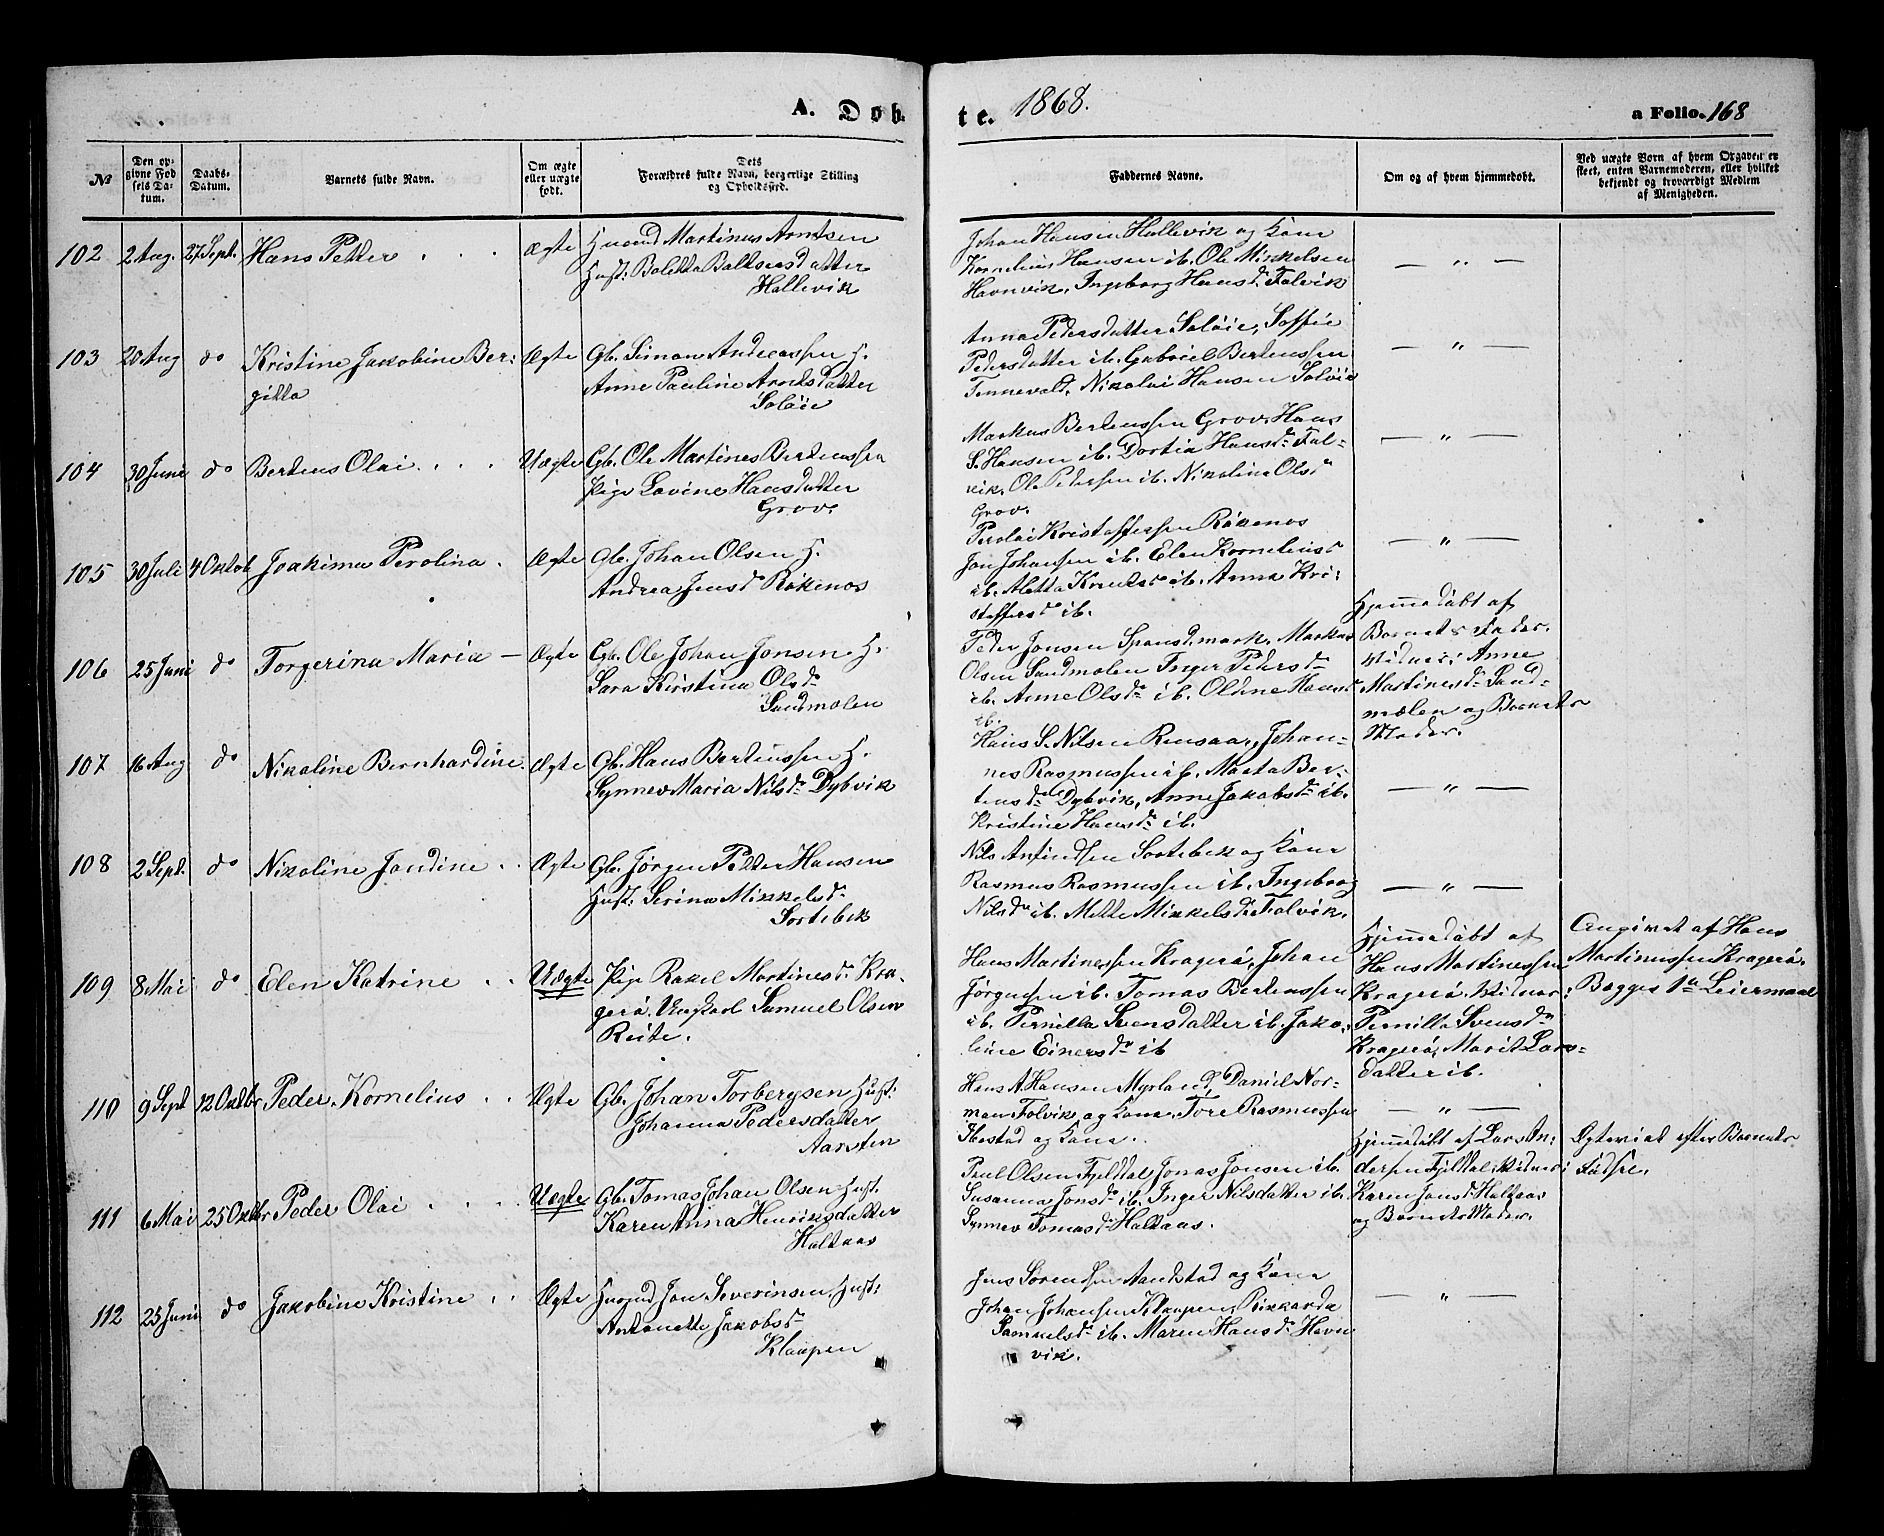 A. Døb-
te. 1868.
a Folio. 168
No
Den op-
givne Fød
sels Da-
tum.
Daabs-
Datum.
Barnets fulde Navn.
Om ægte
eller uægte
født.
Dets
Forældres fulde Navn, borgerlige Stilling
og Opholdssted.
Faddernes Navne.
Om og af hvem hjemmedøbt.
Ved uægte Børn af hvem Opgaven er
skeet, enten Barnemoderen, eller hvilket
bekjendt og troværdigt Medlem
af Menigheden.
102 2 Aug. 27 Sept. Hans Petter Ægte
Husmd Martinus Arntsen
Hust: Boletta Baltsersdatter
Hallevik
Johan Hansen Hallevik og Kone
Kornelius Hansen ib. Ole Mikkelsen
Havnvik, Ingeborg Hansdr Folvik
— „ —
103 20 Aug do Kristine Jakobine Ber-
gitta
Ægte
Gb. Simon Andreassen H.
Anne Pauline Arntsdatter
Soløie
Anna Pedersdatter Soløie, Soffie
Pedersdatter ib. Gabriel Bertenssen
Tennevold, Nikolai Hansen Soløie
— „ —
104 30 Juni do Bertens Olai Uægte
Gb. Ole Martines Bertenssen
Pige Lovine Hansdatter
Grov.
Markus Bertenssen Grov, Hans
S. Hansen ib. Dortia Hansdr Fol-
vik, Ole Pedersen ib. Nikolina Olsdr
Grov.
— „ —
105 30 Juli 4 Oktob Joakima Perolina Ægte
Gb. Johan Olsen H.
Andrea Jensdr Røkenes
Perolai Kristoffersen Røkenes
Jon Johansen ib. Elen Korneliusdr
ib. Aletta Knudsdr ib. Anna Kri-
stoffersdr ib.
— „ —
106 25 Juni do Torgerina Maria Ægte
Gb. Ole Johan Jonsen H.
Sara Kirstina Olsdr
Sandmolen
Peder Jonsen Spansdmark, Markus
Olsen Sandmolen Inger Pedersdr
ib. Anne Olsdr ib. Oldine Hansdr
ib.
Hjemmedøbt af
Barnets Fader.
Vidner: Anne
Martinesdr Sand-
mælen og Barnets
Moder.
107 16 Aug do Nikoline Bernhardine Ægte
Gb. Hans Bertenssen H.
Synnev Maria Nilsdr Dybvik
Hans S. Nilsen Rensaa, Johan-
nes Rasmussen ib. Marta Ber-
tensdr Dybvik, Anne Jakobsdr ib.
Kristine Hansdr ib.
— „ —
108 2 Sept. do Nikoline Jandine Ægte
Gb. Jørgen Petter Hansen
Hust. Serina Mikkelsdr
Sortebek
Nils Anfindsen Sortebek og Kone
Rasmus Rasmussen ib. Ingeborg
Nilsdr ib. Mette Mikkelsdr Folvik,
— „ —
109 8 Mai do Elen Katrine Uægte
Pige Rakel Martinesdr Kra-
gerø. Ungkarl Samuel Olsen
Reite.
Hans Martinessen Kragerø, Johan
Jørgensen ib. Tomas Bertenssen
ib. Pernilla Svensdatter ib. Jako-
line Einersdr ib
Hjemmedøbt af
Hans Martinessen
Kragerø. Vidner:
Pernilla Svensdr
Kragerø, Marit Lars-
datter ib.
Angivet af Hans
Martinussen Kragerø.
Begges 1ste Leiermaal
110 9 Sept 12 Oktbr Peder Kornelius Ægte
Gb. Johan Torbergsen Hust:
Johanna Pedersdatter
Aarsten
Hans A. Hansen Myrland, Daniel Nor-
man Folvik og Kone, Tore Rasmussen
Ibestad og Kone.
— „ —
111 6 Mai 25 Oktbr Peder Olai Uægte
Gb. Tomas Johan Olsen Hust.
Karen Anna Henriksdatter
Haltaas
Paul Olsen Fjeldal, Jonas Jonsen ib.
Susanna Jonsdr ib. Inger Nilsdatter ib.
Synnev Tomasdr Haltaas.
Hjemmedøbt af Lars An-
dersen Fjeldal; Vidner:
Karen Jonsdr Haltaas
og Barnets Moder.
Ægteviet efter Barnets
Fødsel.
112 25 Juni do Jakobine Kristine Ægte
Husmd Jon Severinsen, Hust:
Antonette Jakobsdr
Klaupen
Jens Sørensen Aandstad og Kone
Johan Johansen Klaupen, Rikkarda
Samuelsdr ib. Maren Hansdr Havn
vik.
— „ —